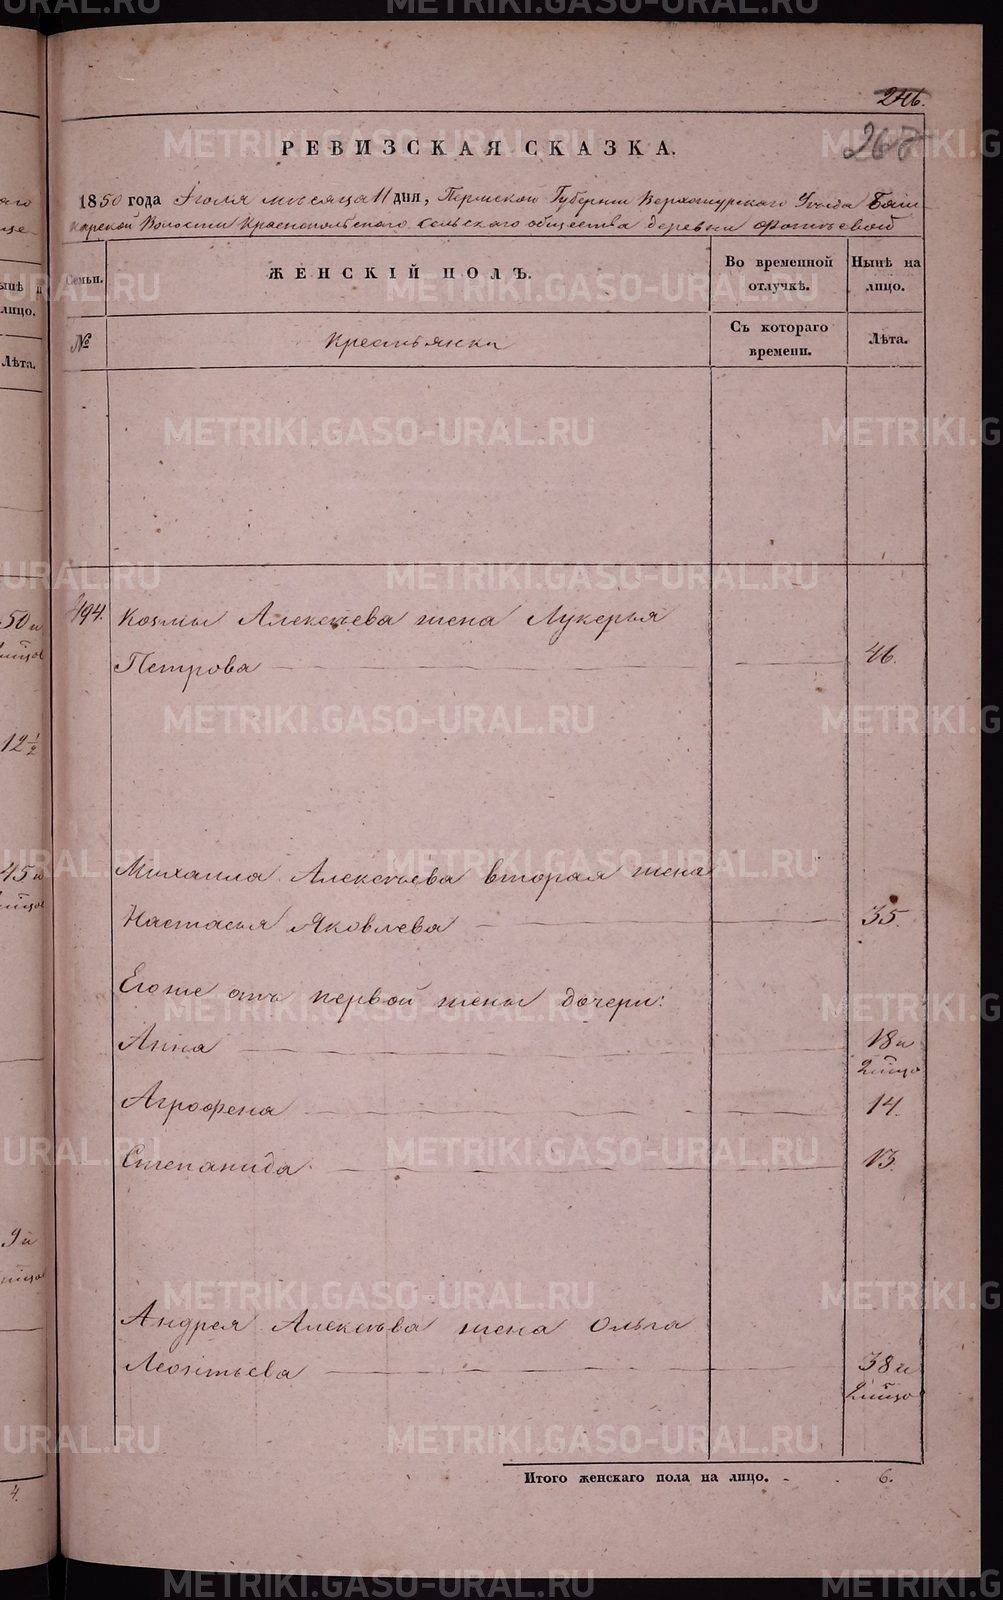 246.
268
РЕВИЗСКАЯ СКАЗКА.
1850 года Іюля мѣсяца 11 дня, Пермской Губерніи Верхотурскаго Уѣзда Баш
карской Волости Краснопольскаго сельскаго общества деревни Фотѣевой
Семьи.
ЖЕНСКІЙ ПОЛЪ.
Во временной
отлучкѣ.
Нынѣ на
лицо.
№
Крестьянки
Съ котораго
времени.
Лѣта.
494. Козмы Алексѣева жена Лукерья
Петрова 46.
Михаила Алексѣева вторая жена
Настасья Яковлева 35.
Егоже отъ первой жены дочери:
Анна 18 и
Агрофена 14.
Степанида 13.
Андрея Алексѣва жена Ольга
Леонтьева 38 и
Итого женскаго пола на лицо. 6.
ынѣ н
лицо.
Лѣта.
50 и
12½
45 и
9 и
4.
METRIKI.GASO-URAL.RU